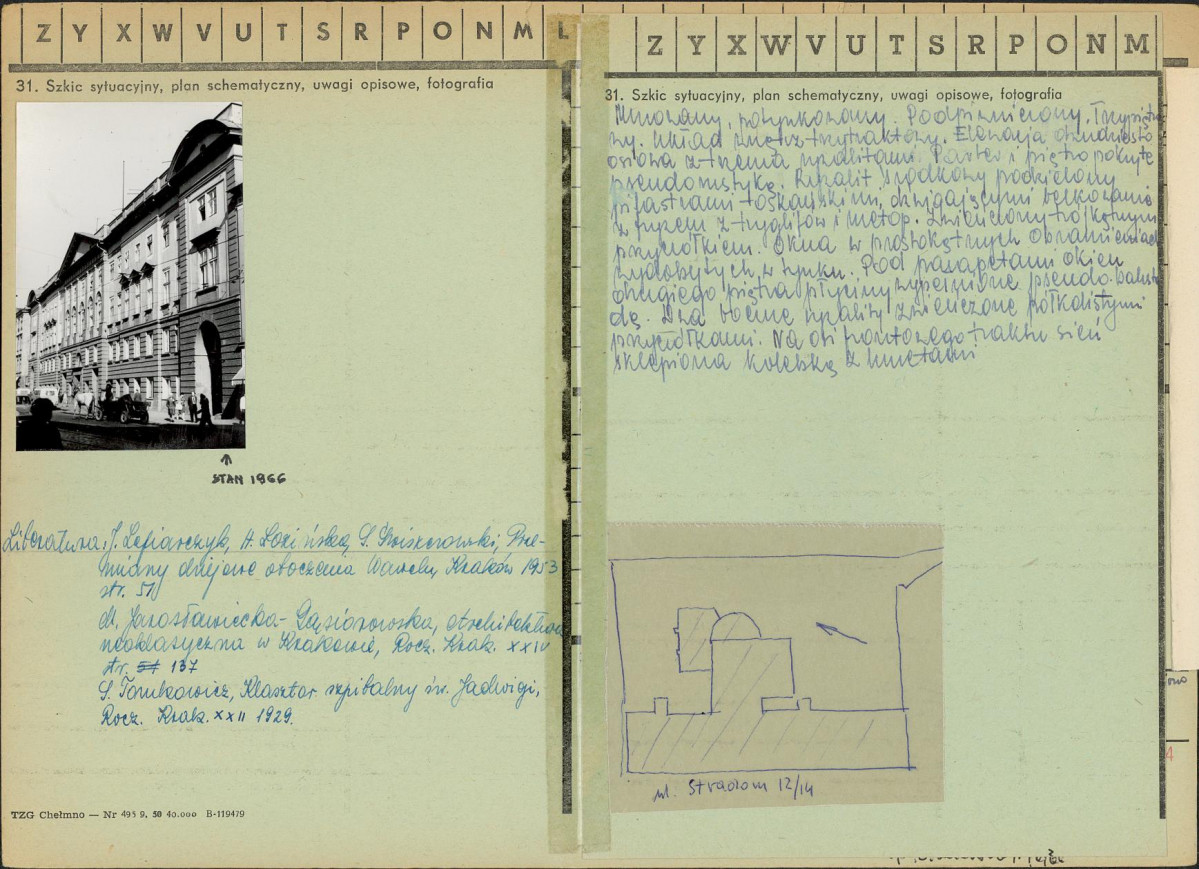 Z Y X W V U T S R P O N M L
31. Szkic sytuacyjny, plan schematyczny, uwagi opisowe, fotografia
STAN 1966
Literatura: J. Lepiarczyk, H. Łozińska, S. Świszczowski, Prze-
miany dziejowe otoczenia Wawelu, Kraków 1953
str. 51
M. Jarosławiecka-Gąsiorowska, Architektura
neoklasyczna w Krakowie, Rocz. Krak. XXIV
str. 137
S. Tomkowicz, Klasztor szpitalny św. Jadwigi,
Rocz. Krak. XXII 1929.
TZG Chełmno — Nr 495 9. 50 40.000 B-119479
Z Y X W V U T S R P O N M
31. Szkic sytuacyjny, plan schematyczny, uwagi opisowe, fotografia
Murowany, potynkowany. Podpiwniczony. Trzypiętro
wy. Układ wnętrz trzytraktowy. Elewacja dwudziesto
osiowa z trzema ryzalitami. Parter i piętro pokryte
pseudorustyką. Ryzalit środkowy podzielony
pilastrami toskańskimi, dźwigającymi belkowanie
z fryzem z tryglifów i metop. Zwieńczony trójkątnym
przyczółkiem. Okna w prostokątnych obramieniach
wydobytych w tynku. Pod parapetami okien
drugiego piętra płyciny wypełnione pseudo-balustra
dą. Dwa boczne ryzality zwieńczone półkolistymi
przyczółkami. Na osi frontowego traktu sień
sklepiona kolebką z lunetami
ul. Stradom 12/14
4